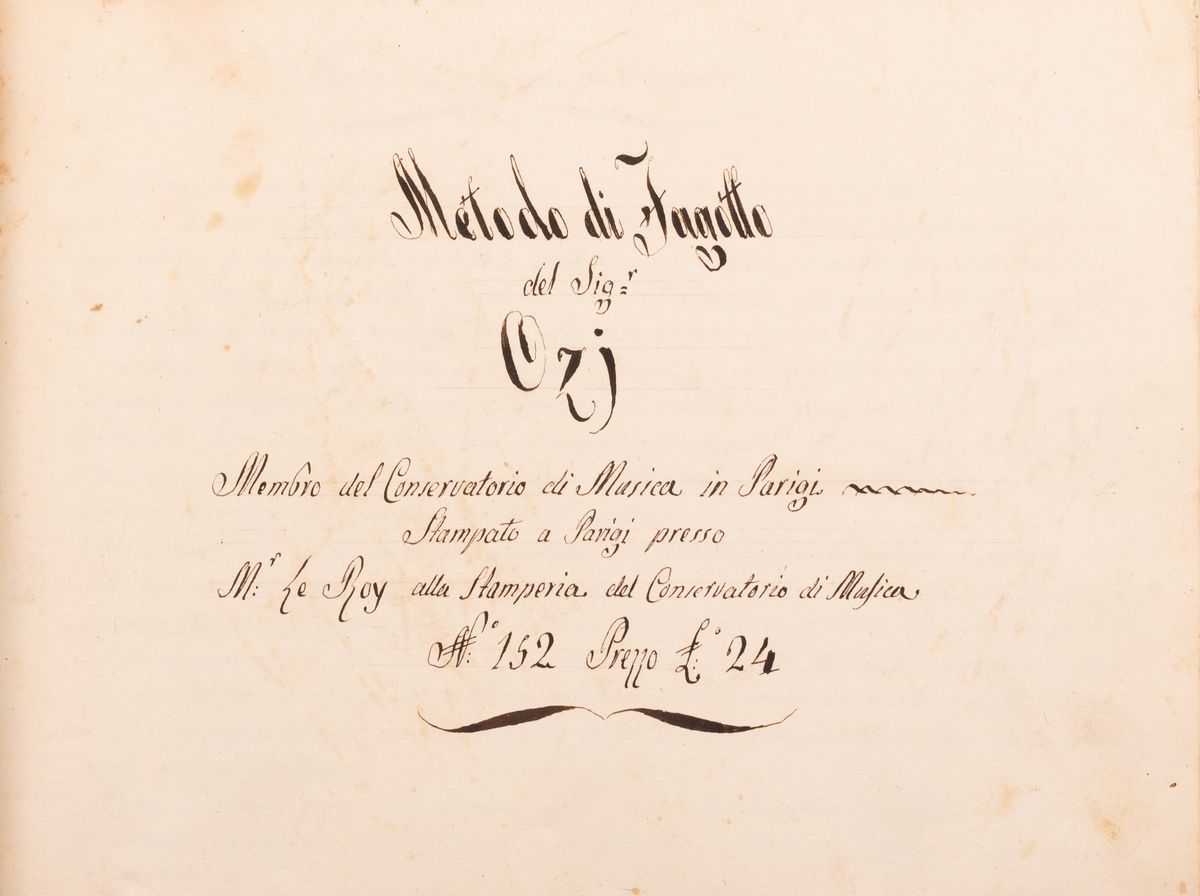 Metodo di Fagotto
del Sig:r
Ozj
Membro del Conservatorio di Musica in Parigi
Stampato a Parigi presso
M:r Le Roy alla Stamperia del Conservatorio di Musica
N:o 152 Prezzo £:o 24